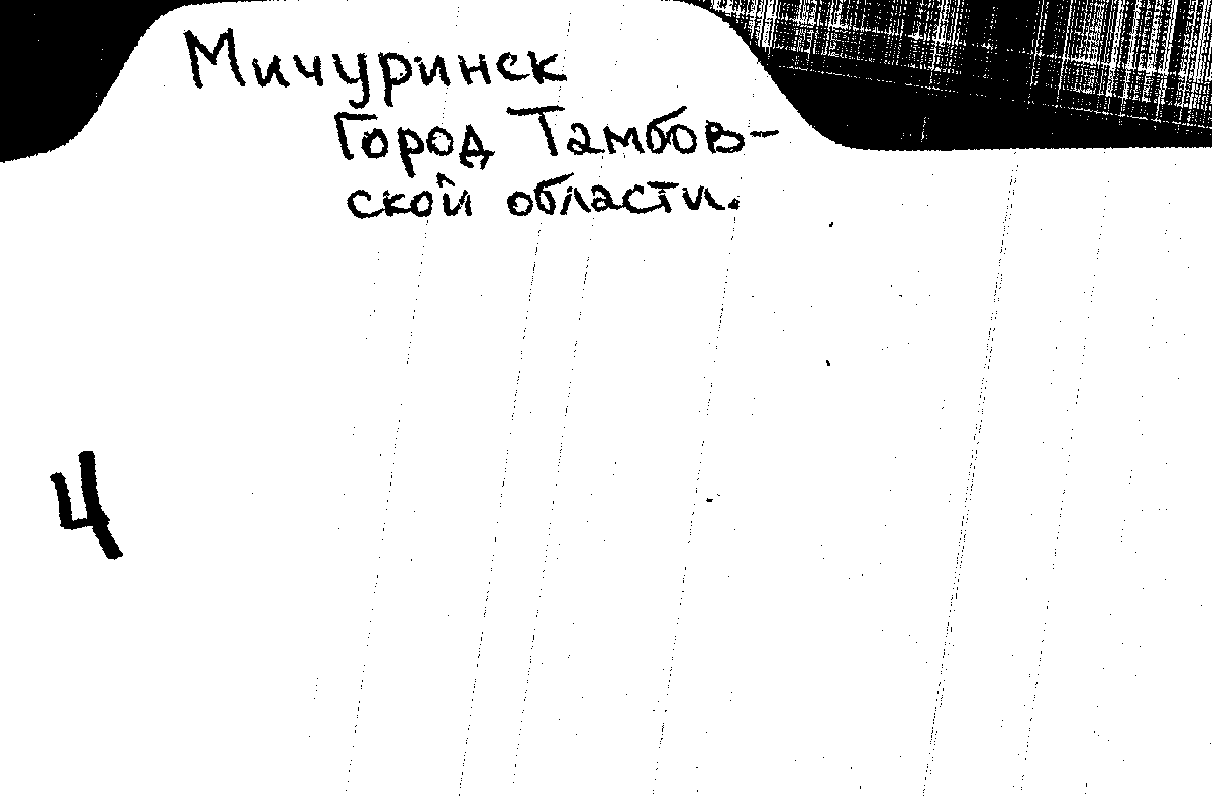 Мичуринск
Город Тамбов-
ской области.
4